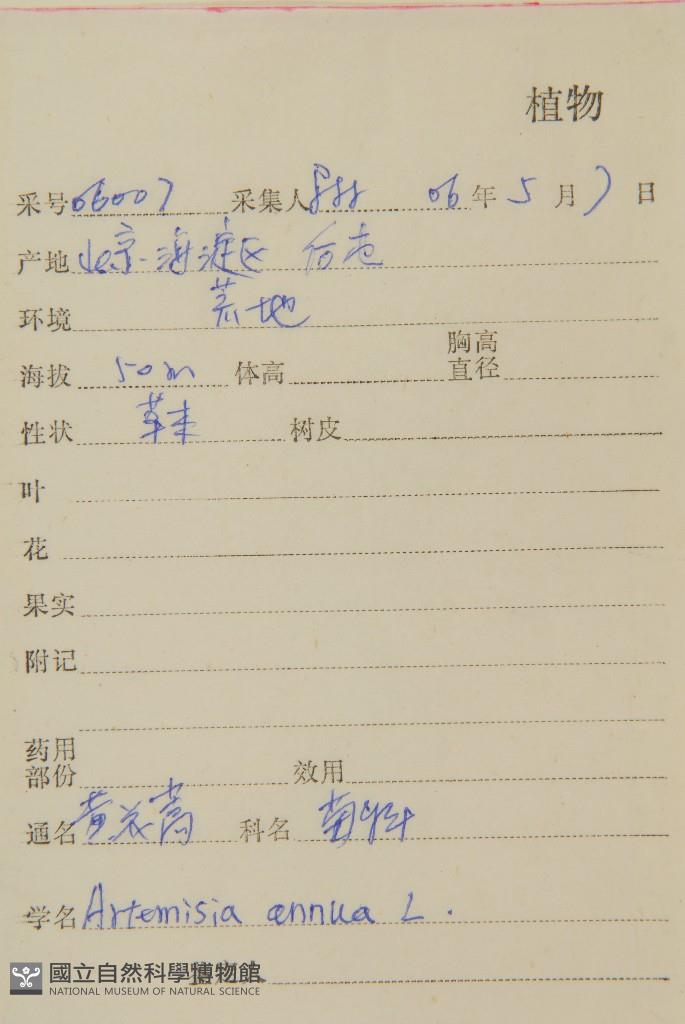 植物
采号 06007 采集人 06 年 5 月 7 日
产地 北京·海淀区
环境 荒地
海拔 50m 体高 胸高直径
性状 草本 树皮
叶
花
果实
附记
药用部份 效用
通名 黄花蒿 科名 菊科
学名 Artemisia annua L.
國立自然科學博物館
NATIONAL MUSEUM OF NATURAL SCIENCE